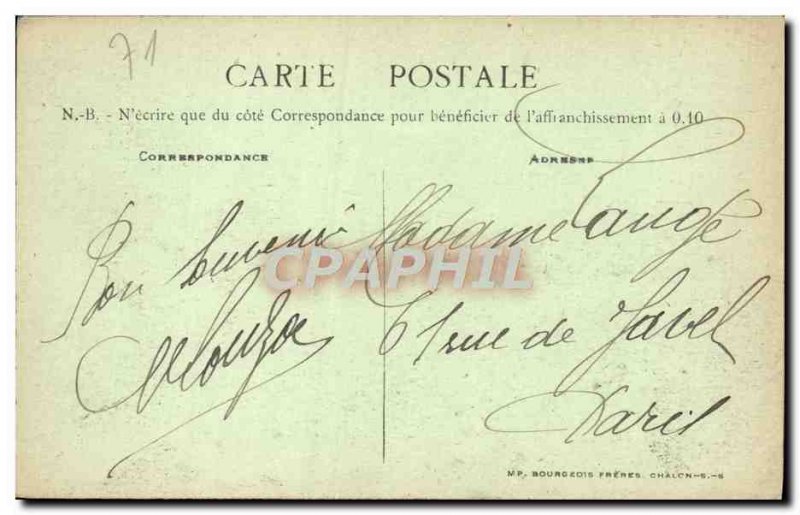 71
CARTE POSTALE
N.-B. - N'écrire que du côté Correspondance pour bénéficier de l'affranchissement à 0.10
CORRESPONDANCE
ADRESSE
Bon Souvenir
Madame Langlé
61 rue de Javel
Paris
CPAPHIL
MP. BOURGEOIS FRÈRES, CHALON-S.-S